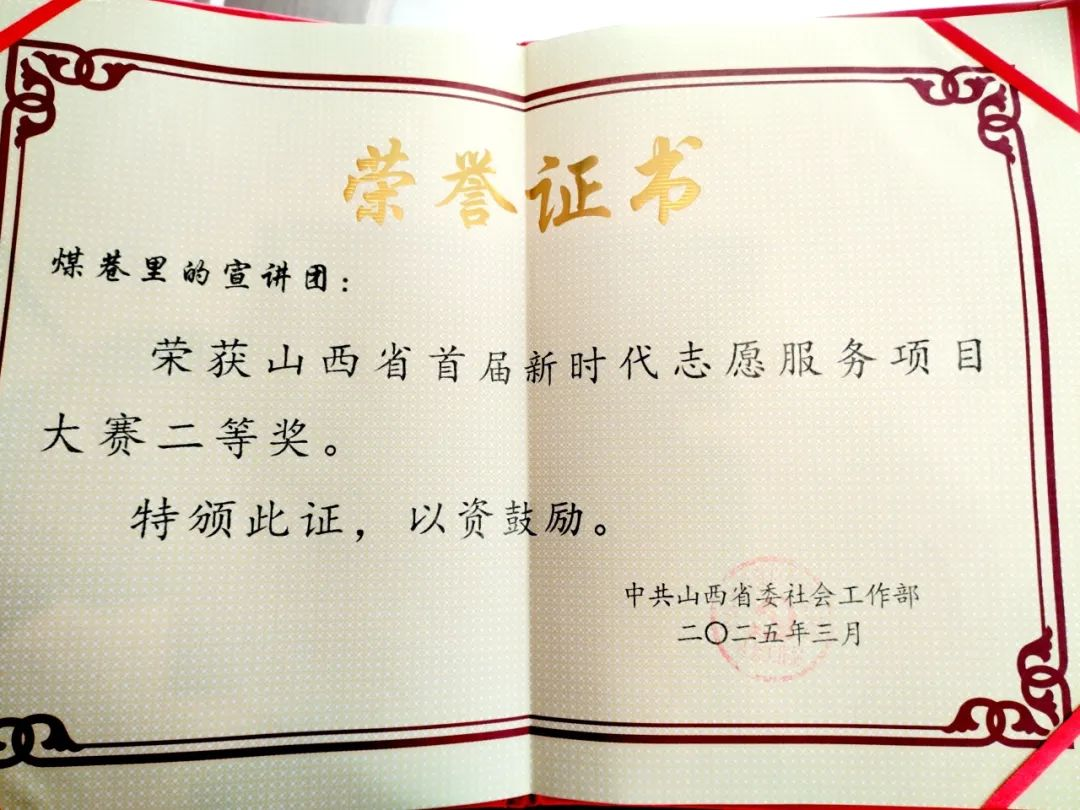 荣誉证书
煤巷里的宣讲团：
荣获山西省首届新时代志愿服务项目
大赛二等奖。
特颁此证，以资鼓励。
中共山西省委社会工作部
二〇二五年三月